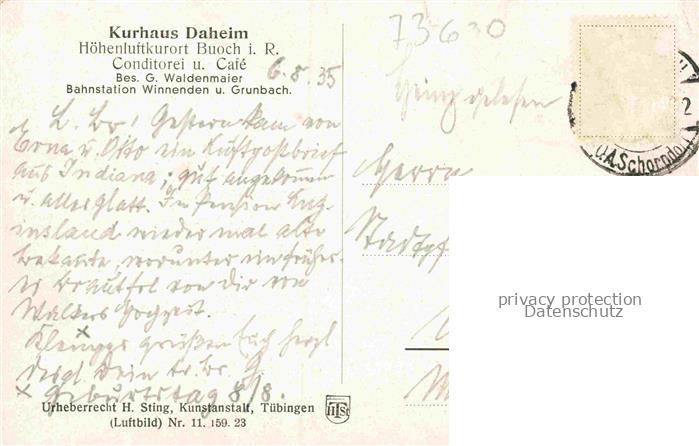 Kurhaus Daheim
Höhenluftkurort Buoch i. R.
Conditorei u. Café
Bes. G. Waldenmaier
Bahnstation Winnenden u. Grunbach.
6.8.35
73630
L. Br! Gestern kam von
Erna u. Otto ein Luftpostbrief
aus Indiana, gut angekommen
u. alles glatt. In Pension Lug-
insland wieder mal alte
Bekannte, worunter ein frühe-
von dir von
Walters Hochzeit.
grüßen Euch herzl
Dein tr. Br. G.
x Geburtstag 8/8.
Urheberrecht H. Sting, Kunstanstalt, Tübingen
(Luftbild) Nr. 11. 159. 23
gelesen
Herrn
Stadtpf
O.A. Schorndorf
2
privacy protection
Datenschutz